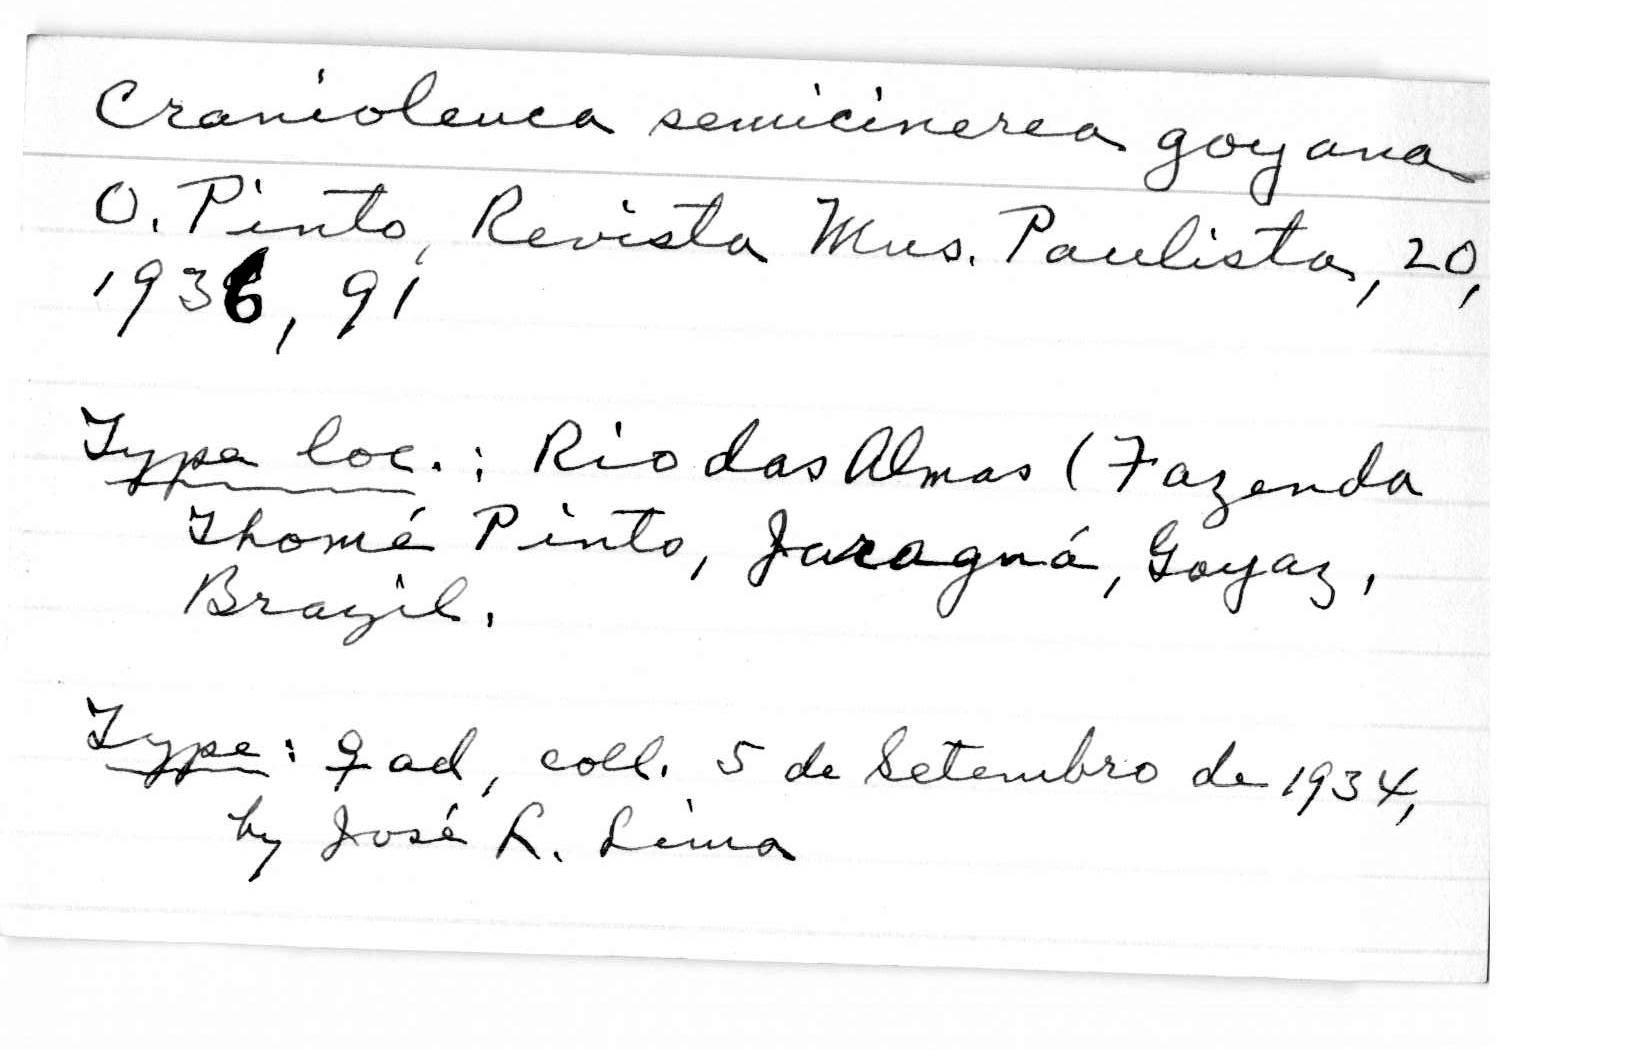 Cranioleuca semicinerea goyana
O. Pinto, Revista Mus. Paulista, 20,
1936, 91
Type loc.: Rio das Almas (Fazenda
Thomé Pinto, Jaraguá, Goyaz,
Brazil.
Type: ♀ ad, coll. 5 de Setembro de 1934,
by José L. Lima